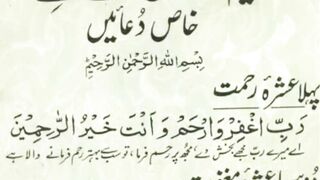 خاص دُعائیں
بِسْمِ اللهِ الرَّحْمٰنِ الرَّحِيْمِ
پہلا عشرۂ رحمت
رَبِّ اغْفِرْ وَارْحَمْ وَاَنْتَ خَيْرُ الرّٰحِمِيْنَ
اے میرے رب مجھے بخش دے مجھ پر رحم فرما، تو سب سے بہتر رحم فرمانے والا ہے